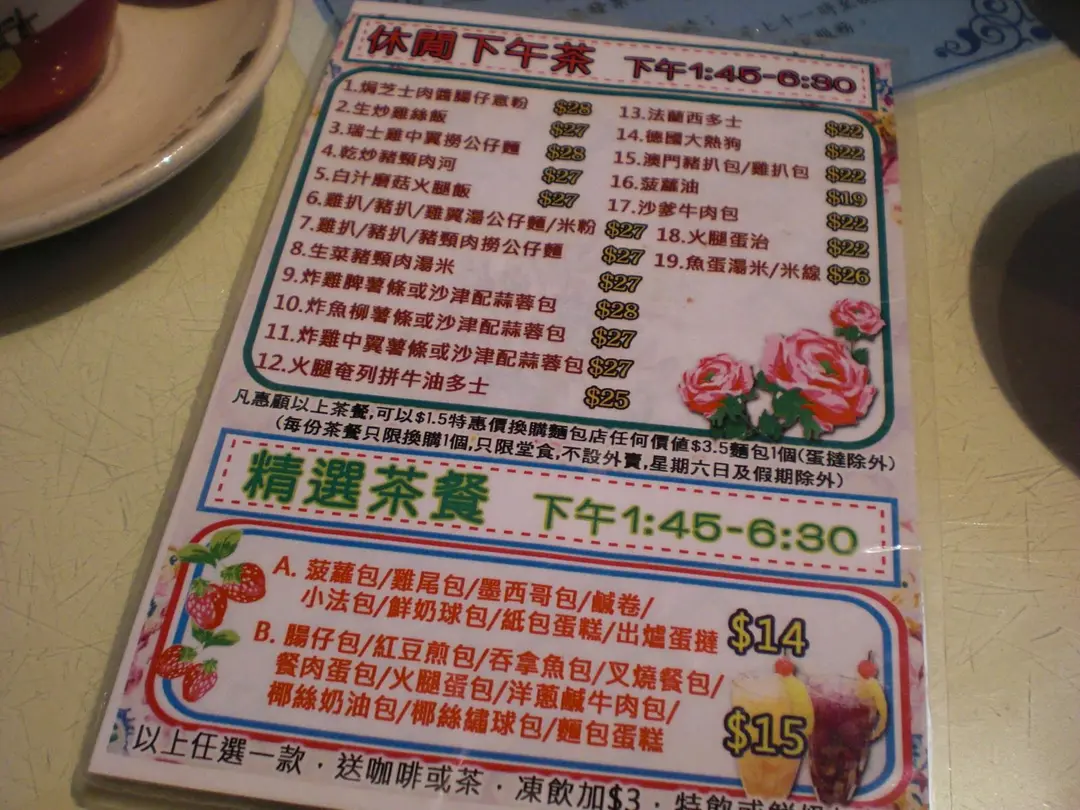 休閒下午茶 下午1:45-6:30
1.焗芝士肉醬腸仔意粉 $28
2.生炒雞絲飯 $27
3.瑞士雞中翼撈公仔麵 $28
4.乾炒豬頸肉河 $27
5.白汁磨菇火腿飯 $27
6.雞扒/豬扒/雞翼湯公仔麵/米粉 $27
7.雞扒/豬扒/豬頸肉撈公仔麵 $27
8.生菜豬頸肉湯米 $27
9.炸雞脾薯條或沙津配蒜蓉包 $28
10.炸魚柳薯條或沙津配蒜蓉包 $27
11.炸雞中翼薯條或沙津配蒜蓉包 $27
12.火腿奄列拼牛油多士 $25
13.法蘭西多士 $22
14.德國大熱狗 $22
15.澳門豬扒包/雞扒包 $22
16.菠蘿油 $19
17.沙爹牛肉包 $22
18.火腿蛋治 $22
19.魚蛋湯米/米線 $26
凡惠顧以上茶餐,可以$1.5特惠價換購麵包店任何價值$3.5麵包1個(蛋撻除外)
(每份茶餐只限換購1個,只限堂食,不設外賣,星期六日及假期除外)
精選茶餐 下午1:45-6:30
A. 菠蘿包/雞尾包/墨西哥包/鹹卷/
小法包/鮮奶球包/紙包蛋糕/出爐蛋撻 $14
B. 腸仔包/紅豆煎包/吞拿魚包/叉燒餐包/
餐肉蛋包/火腿蛋包/洋蔥鹹牛肉包/
椰絲奶油包/椰絲繡球包/麵包蛋糕 $15
以上任選一款．送咖啡或茶．凍飲加$3．特飲或鮮奶